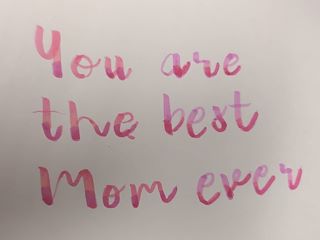 You are
the best
Mom ever